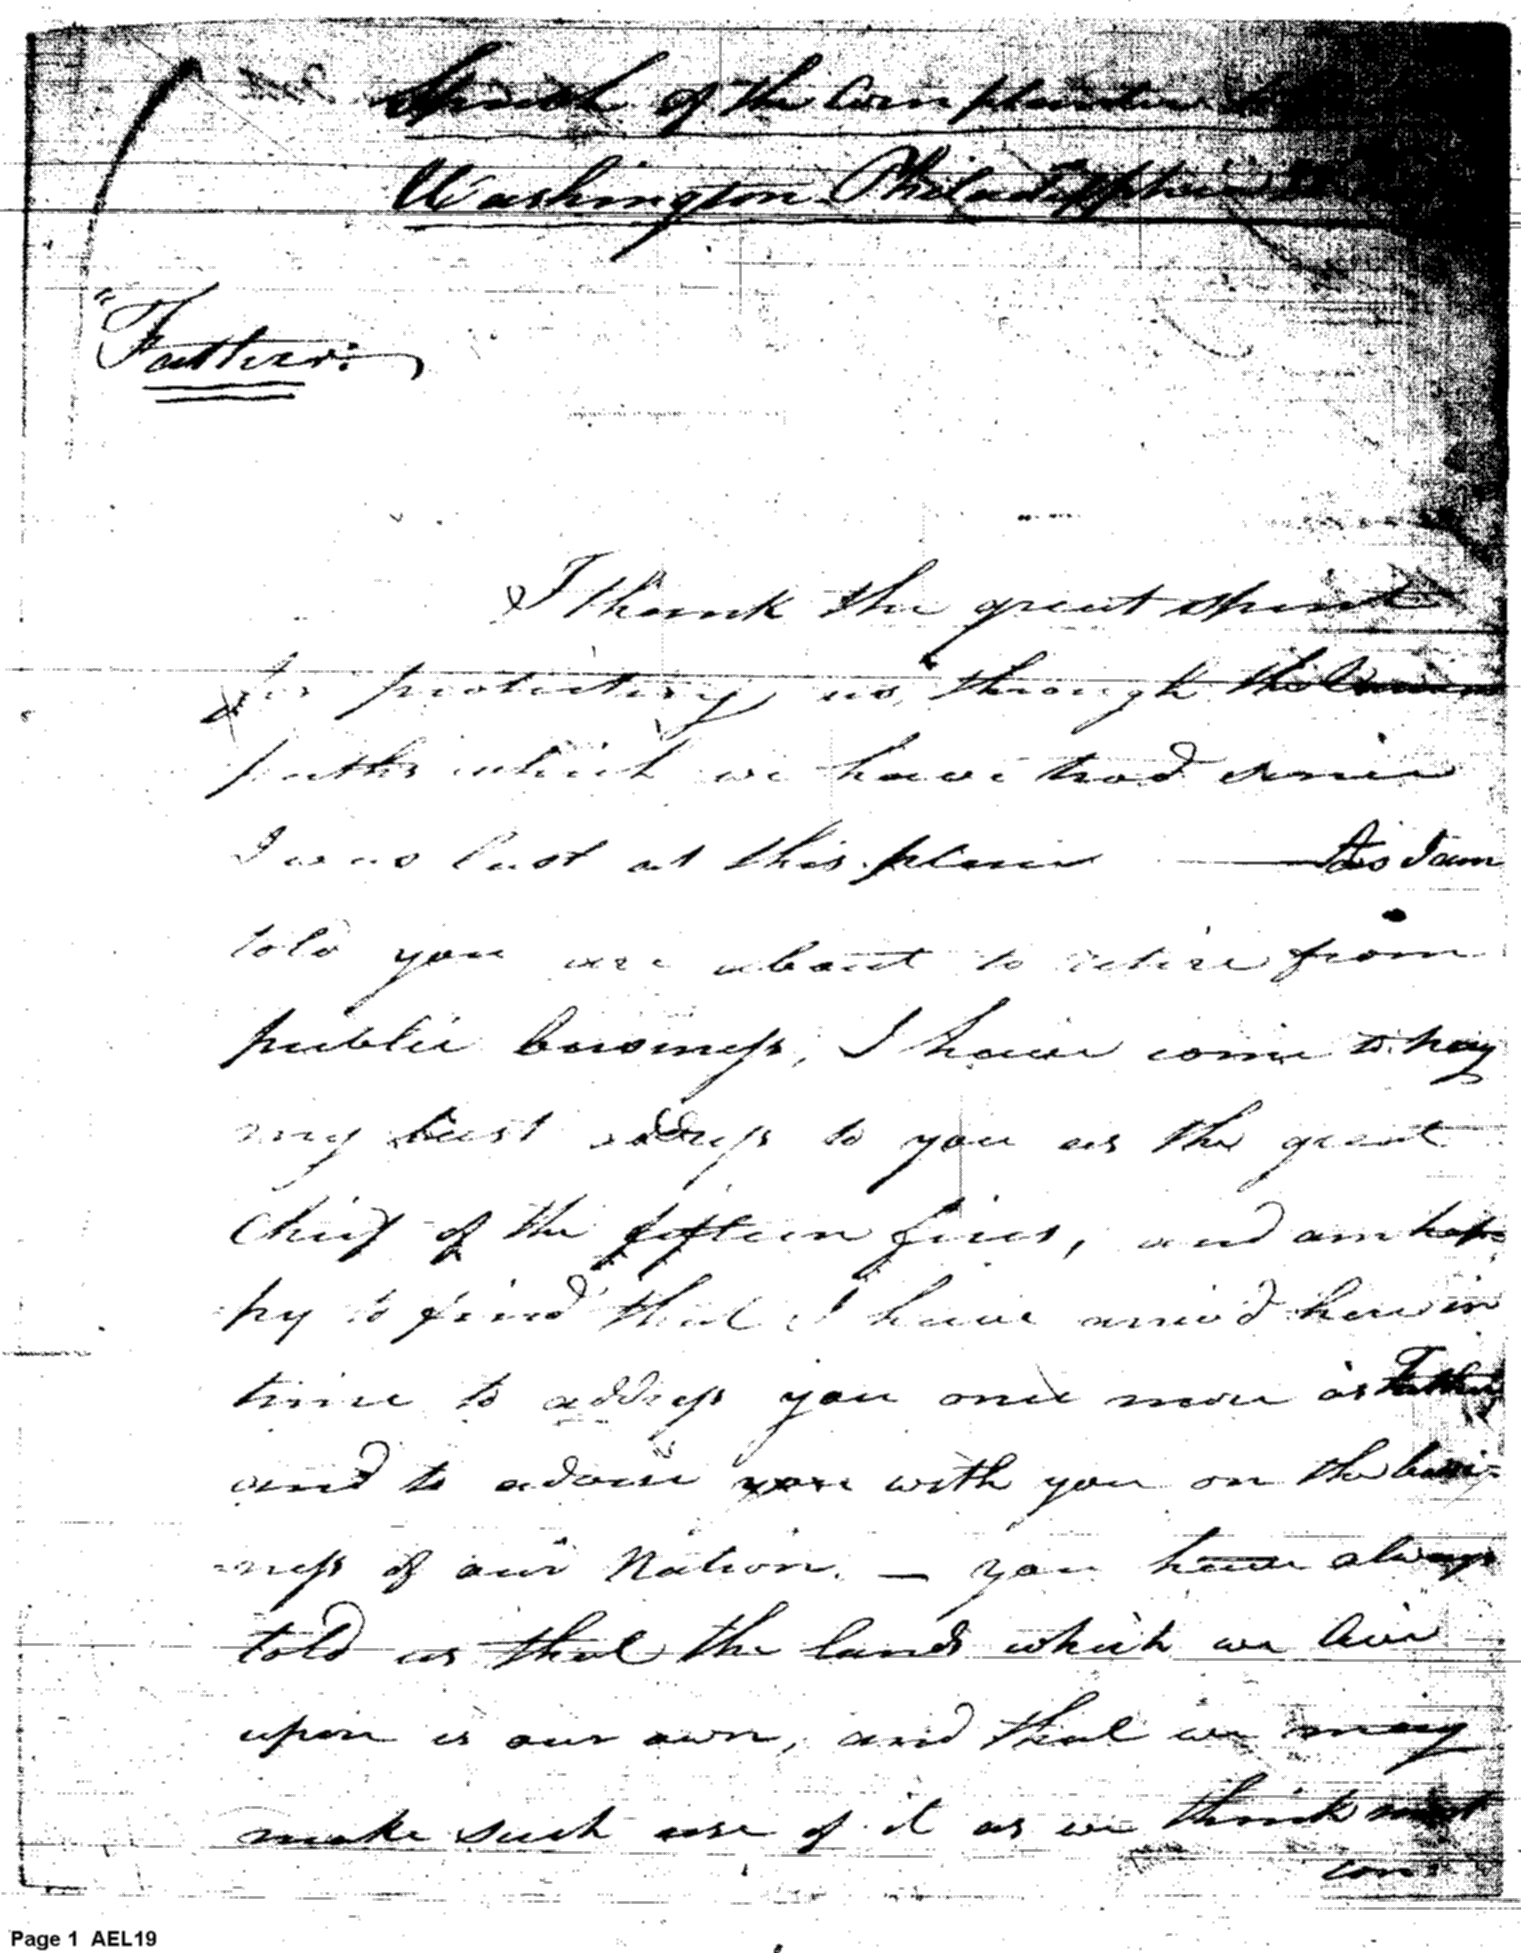 Speech of the Corn planter to
Washington Philadelphia
"Father:
I thank the great spirit
for protecting us, through the
paths which we have trod since
I was last at this place — As I am
told you are about to retire from
public business, I have come to pay
my last address to you as the great
Chief of the fifteen fires, and am hap-
py to find that I have arrived here in
time to address you once more as Father
and to advise you with you on the busi-
-ness of our Nation. — you have always
told us that the lands which we live
upon is our own, and that we may
make such use of it as we think most
con-
Page 1 AEL19